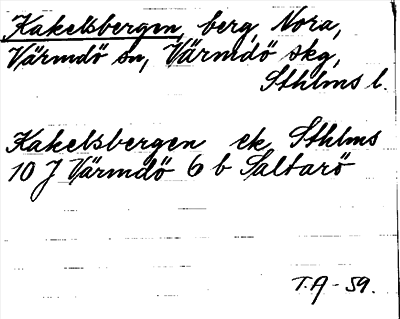 Kakelsbergen, berg, Nora,
Värmdö sn, Värmdö skg,
Sthlms l.
Kakelsbergen ek Sthlms
10 J Värmdö 6 b Saltarö
T.A - 59.